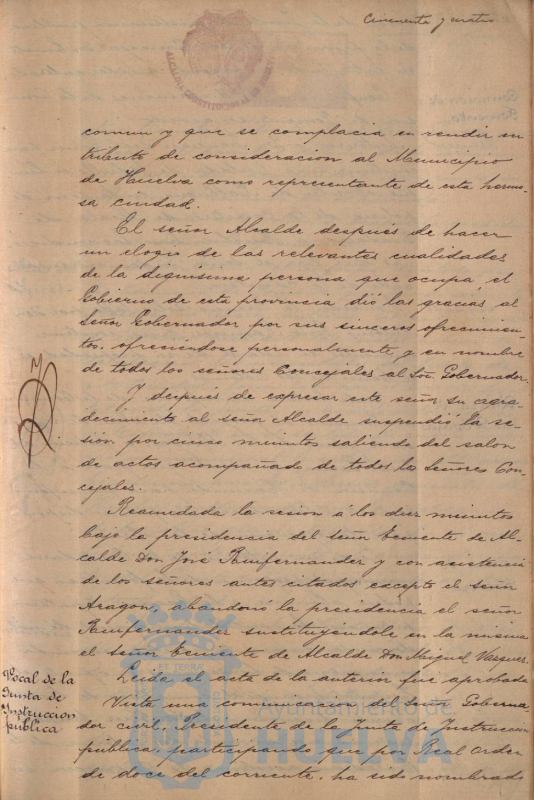 Cincuenta y cuatro
ALCALDIA CONSTITUCIONAL DE HUELVA
comun y que se complacia en rendir un
tributo de consideracion al Municipio
de Huelva como representante de esta hermo-
sa ciudad.
El señor Alcalde despues de hacer
un elogio de las relevantes cualidades
de la dignisima persona que ocupa el
Gobierno de esta provincia dió las gracias al
Señor Gobernador por sus sinceros ofrecimien-
tos, ofreciendose personalmente y en nombre
de todos los señores Concejales al Sor. Gobernador.
Y despues de expresar este señor su agra-
decimiento al señor Alcalde suspendió la se-
sion por cinco minutos saliendo del salon
de actos acompañado de todos los Señores Con-
cejales.
Reanudada la sesion á los diez minutos
bajo la presidencia del señor Teniente de Al-
calde Don José Ruifernandez y con asistencia
de los señores antes citados excepto el señor
Aragon, abandonó la presidencia el señor
Ruifernandez sustituyendole en la misma
el señor Teniente de Alcalde Don Miguel Vasquez.
Leida el acta de la anterior fué aprobada
Vocal de la
Junta de
Instruccion
pública
Vista una comunicacion del Sor. Goberna
dor civil, Presidente de la Junta de Instruccion
pública, participando que por Real Orden
de doce del corriente, ha sido nombrado
Ayuntamiento de
HUELVA